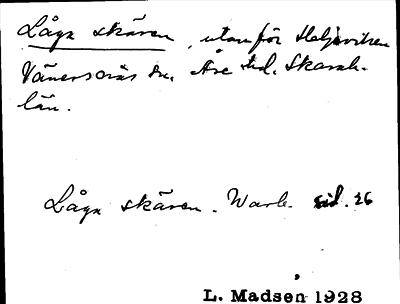 Låga skären, utanför Haljeviken
Vänersnäs sn. Åse hd. Skarab.
län.
Låga skären. Warb. sid. 26
L. Madsen 1928